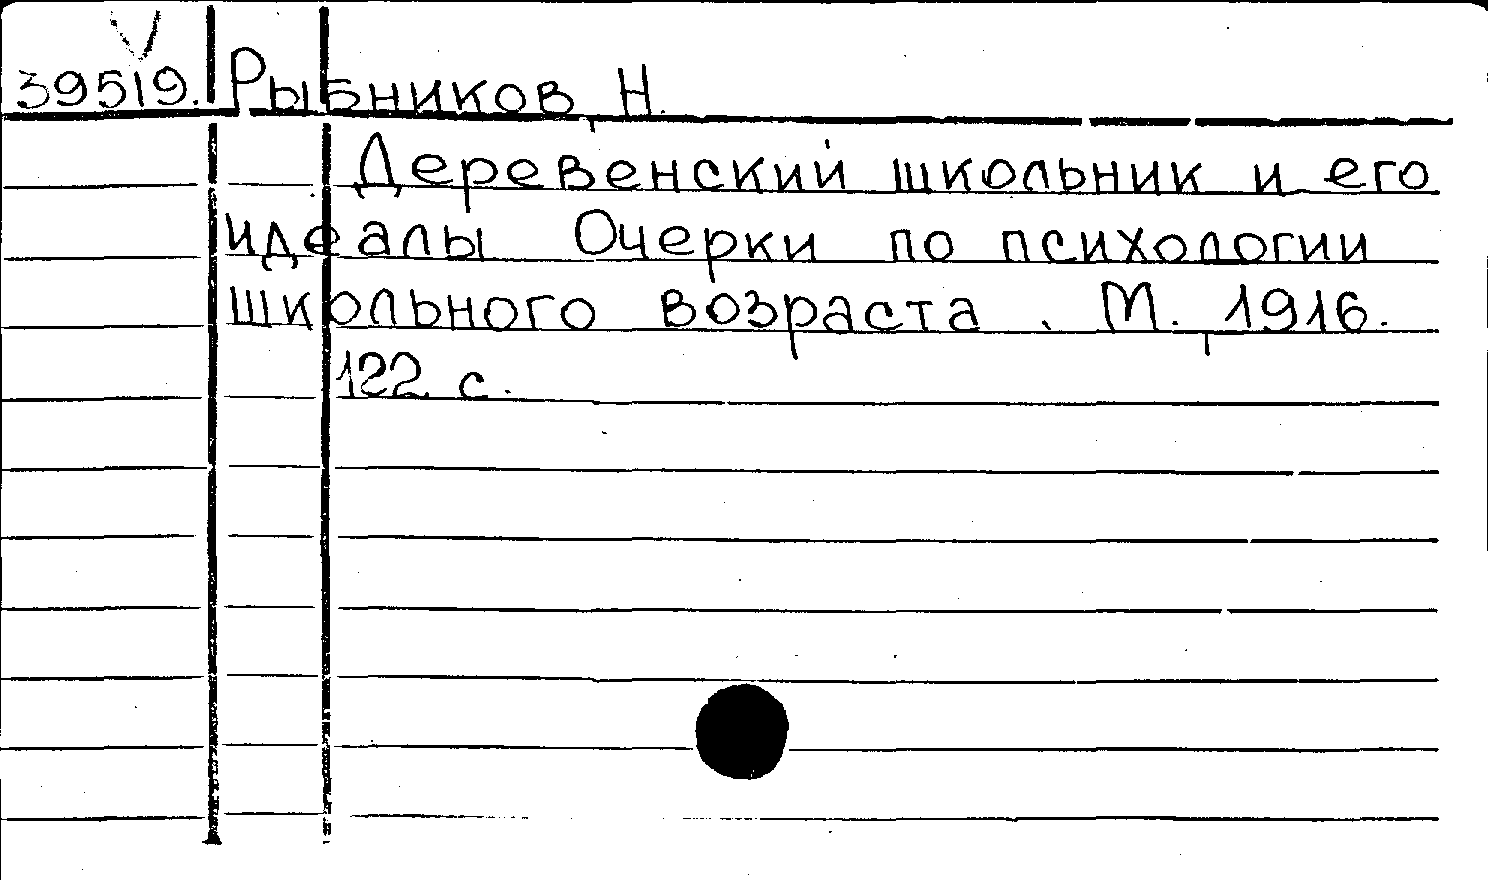 39519. Рыбников, Н.
Деревенский школьник и его
идеалы Очерки по психологии
школьного возраста. М., 1916.
122 с.